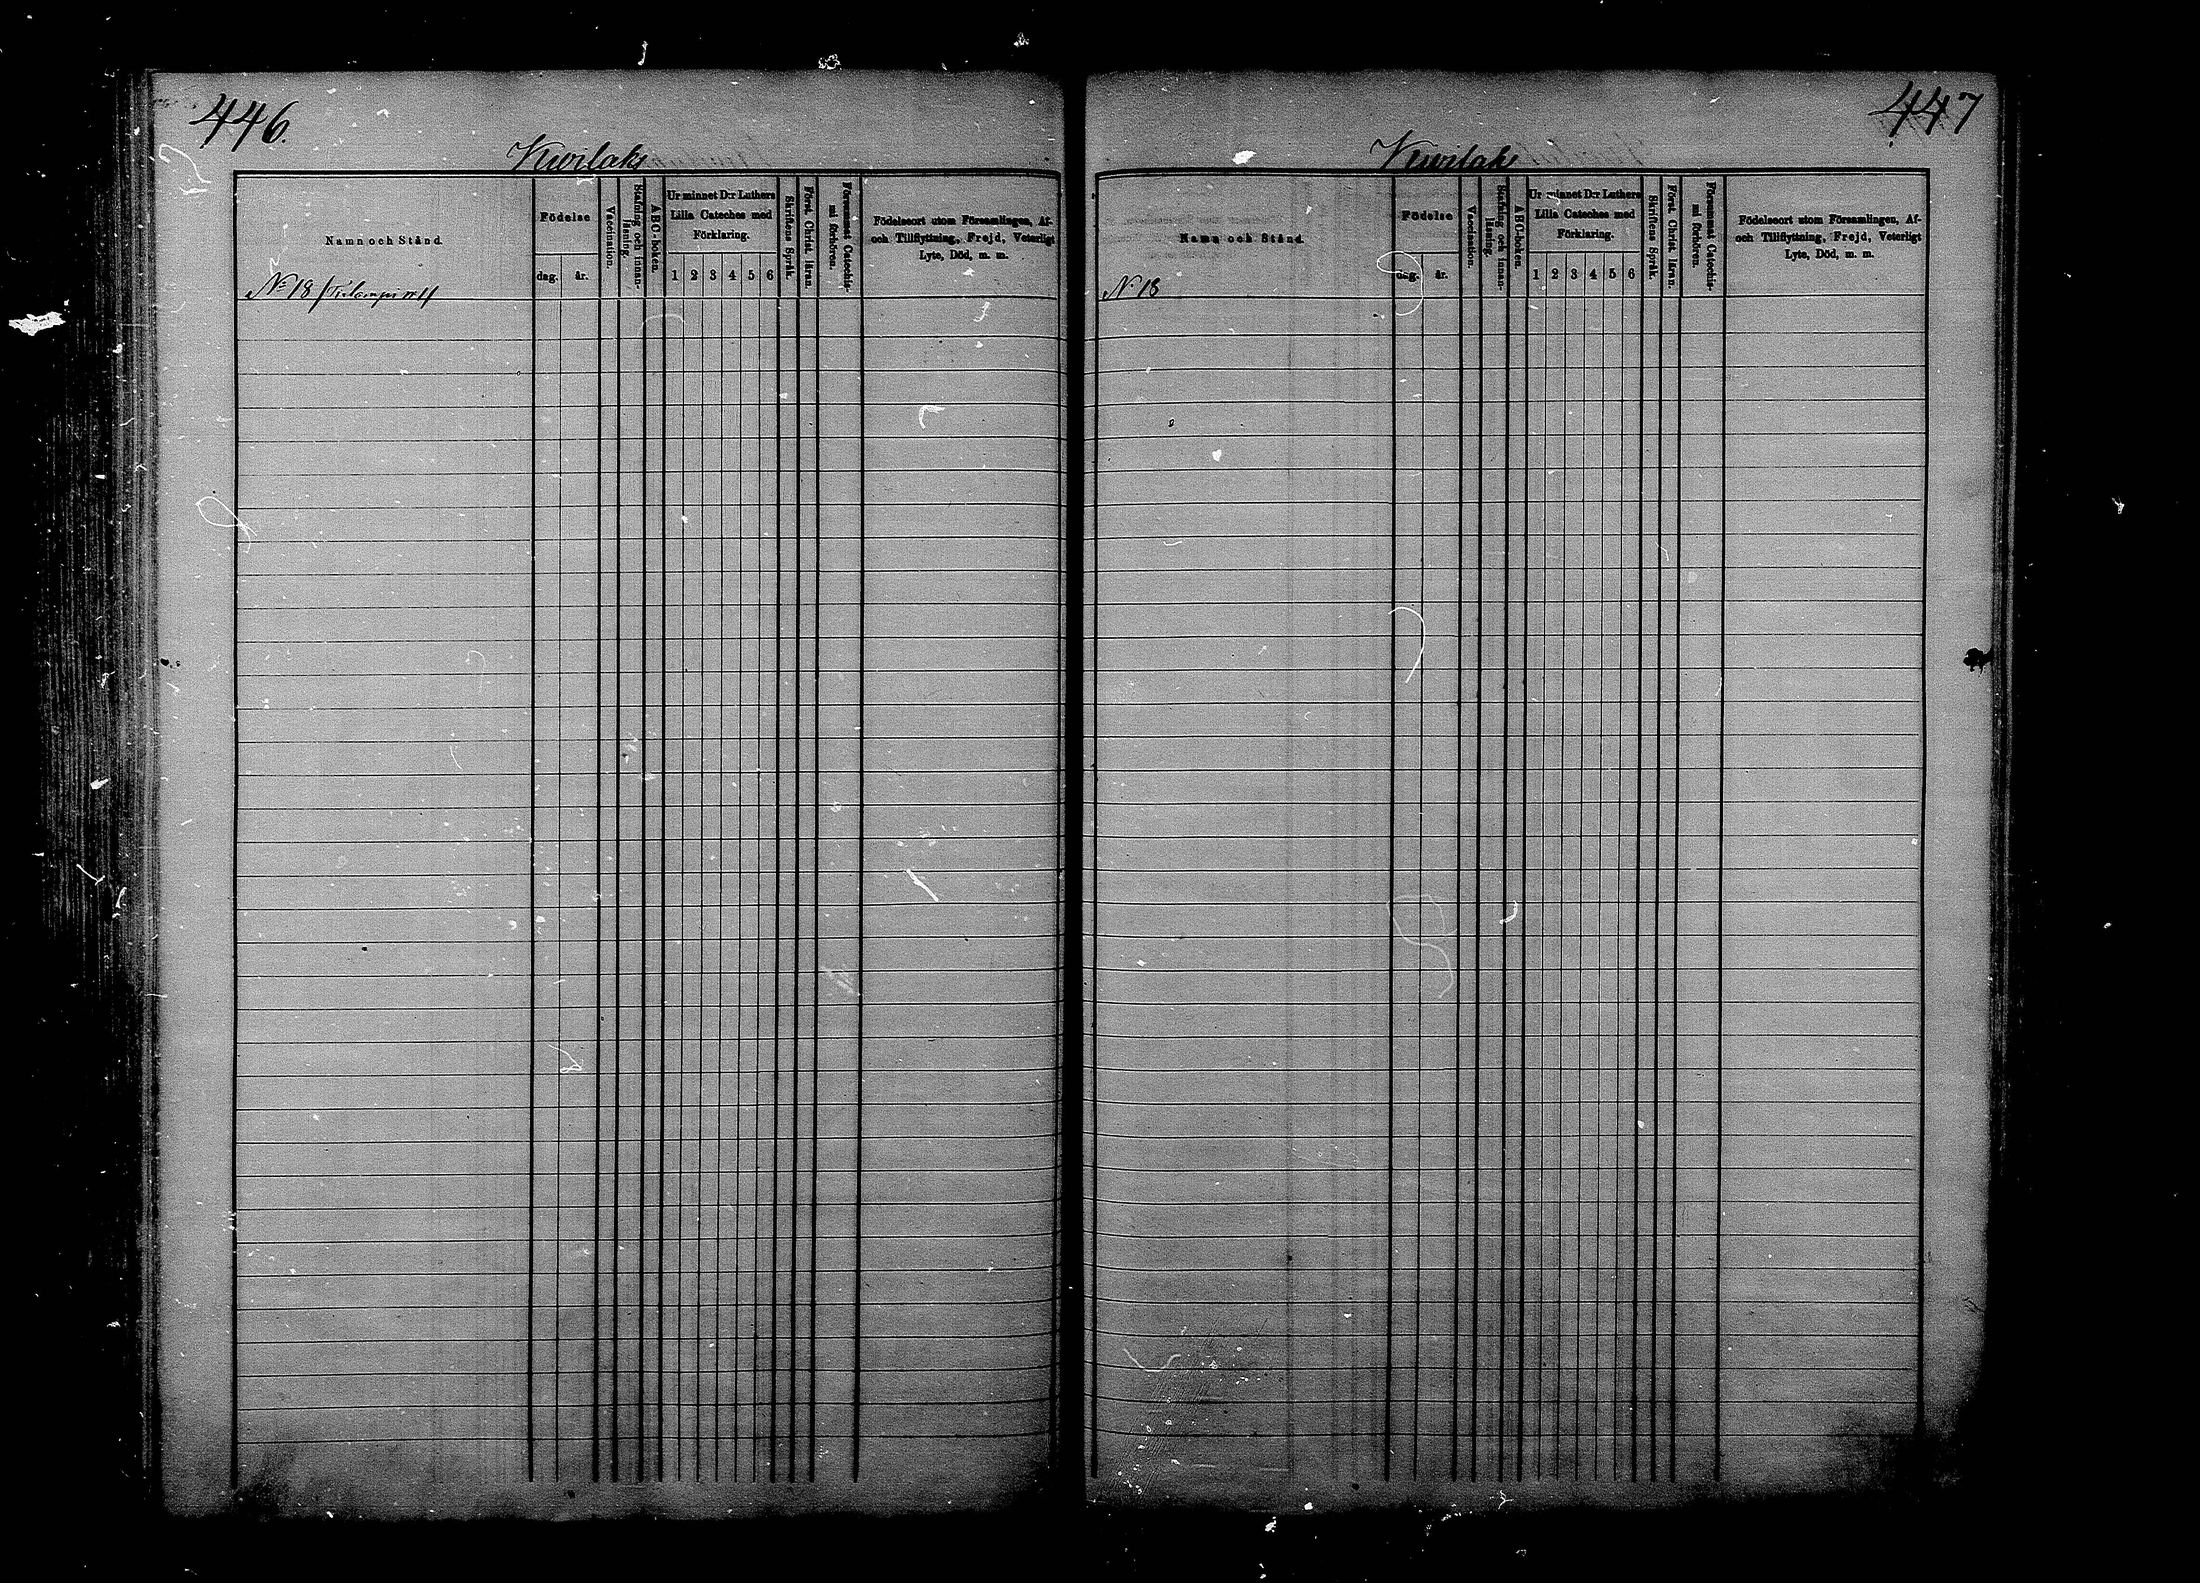 446.
Kuvilaks
Namn och Stånd.
Födelse
dag. år.
Vaccination.
Stafning och innan-
läsning.
ABC-boken.
Ur minnet D:r Luthers
Lilla Cateches med
Förklaring.
1 2 3 4 5 6
Skriftens Språk.
Först. Christ. läran.
Försummat Catechis-
mi förhören.
Födelseort utom Församlingen, Af-
och Tillflyttning, Frejd, Veterligt
Lyte, Död, m. m.
No 18
447
Kuvilaks
Namn och Stånd.
Födelse
dag. år.
Vaccination.
Stafning och innan-
läsning.
ABC-boken.
Ur minnet D:r Luthers
Lilla Cateches med
Förklaring.
1 2 3 4 5 6
Skriftens Språk.
Först. Christ. läran.
Försummat Catechis-
mi förhören.
Födelseort utom Församlingen, Af-
och Tillflyttning, Frejd, Veterligt
Lyte, Död, m. m.
No 18